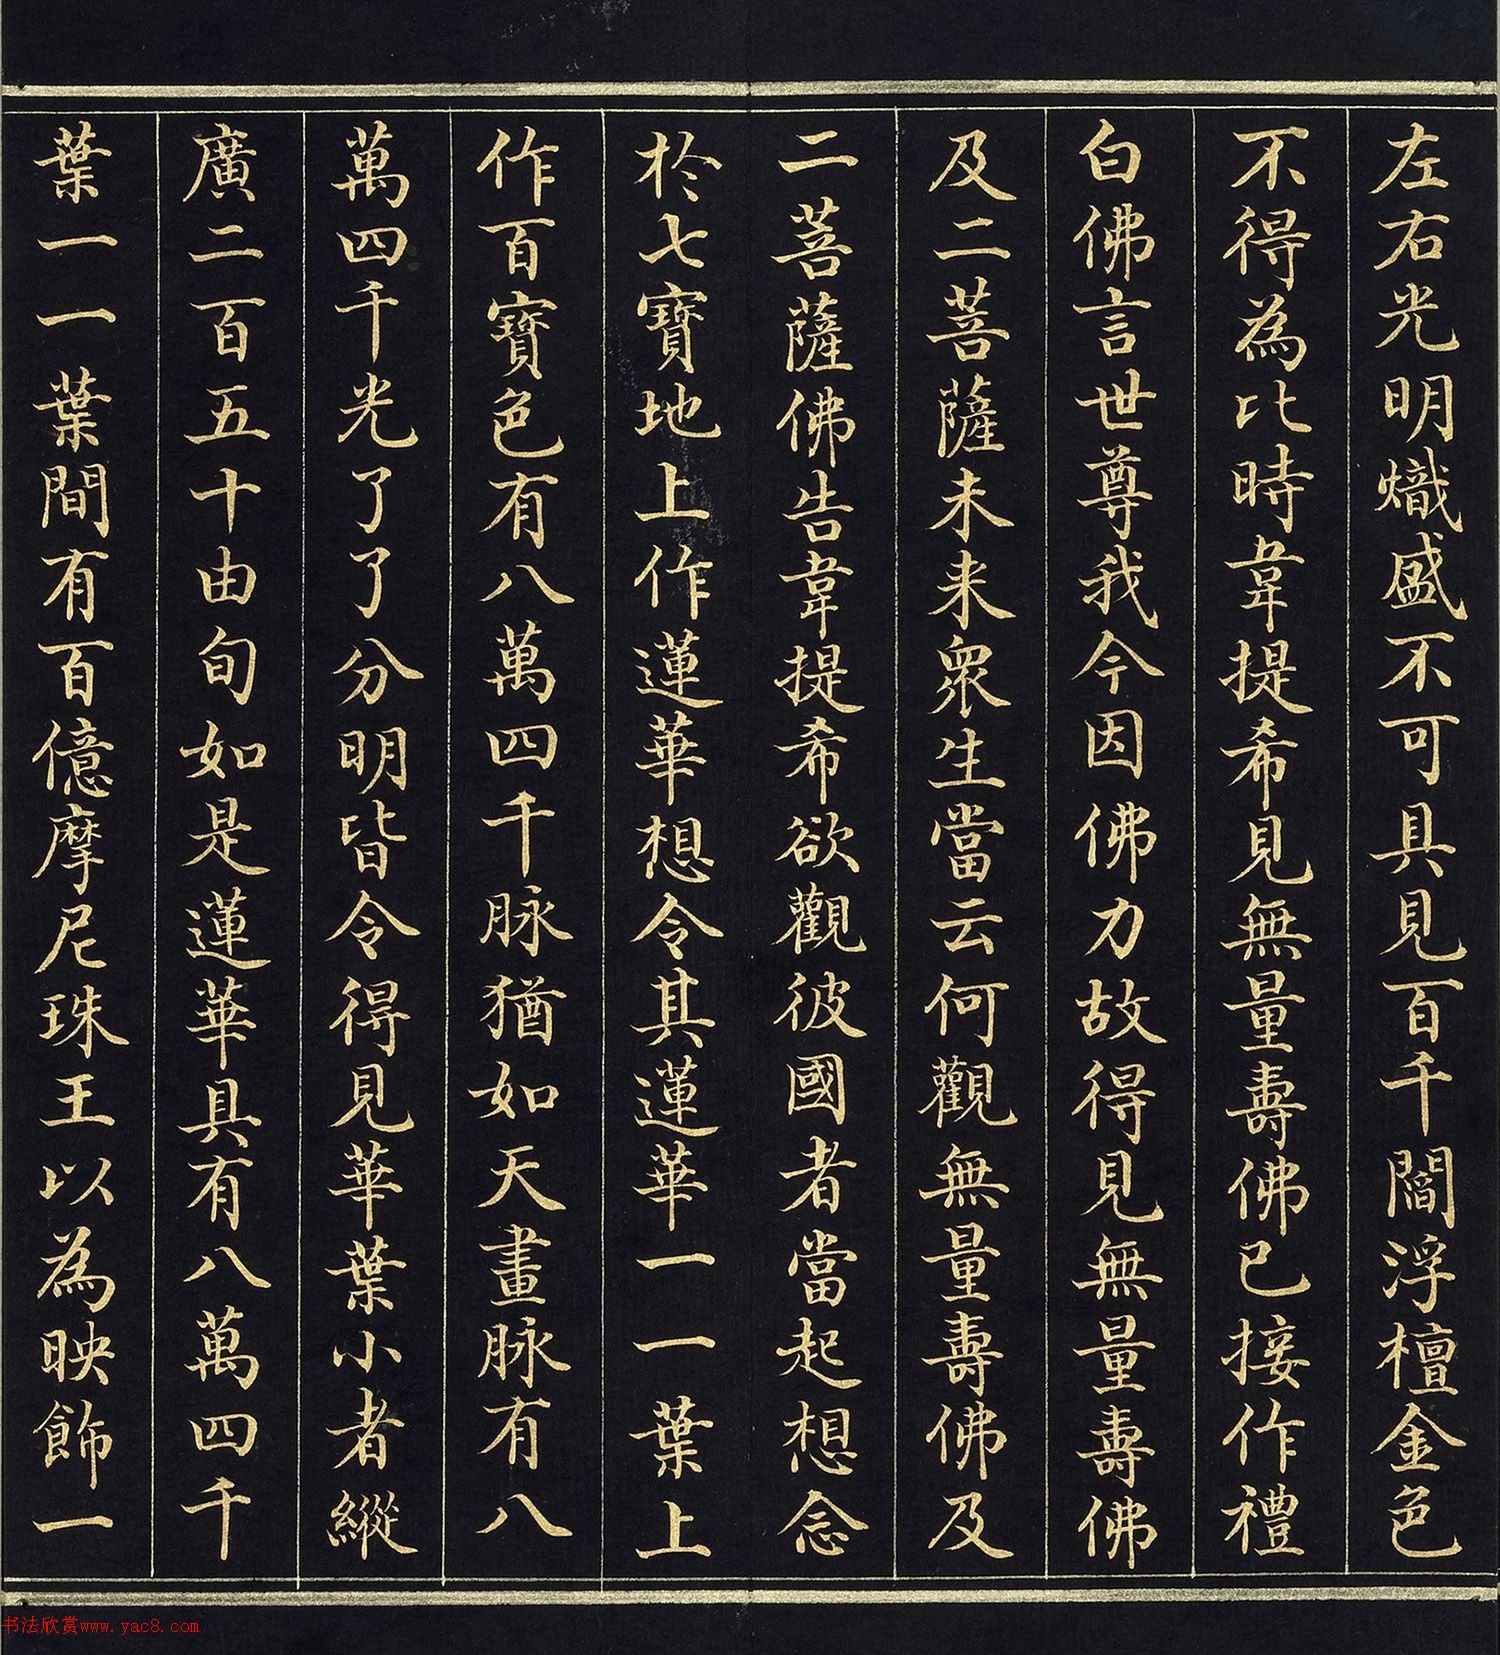 左右光明熾盛不可具見百千閻浮檀金色
不得為比時韋提希見無量壽佛已接作禮
白佛言世尊我今因佛力故得見無量壽佛
及二菩薩未来眾生當云何觀無量壽佛及
二菩薩佛告韋提希欲觀彼國者當起想念
於七寶地上作蓮華想令其蓮華一一葉上
作百寶色有八萬四千脉猶如天畫脉有八
萬四千光了了分明皆令得見華葉小者縱
廣二百五十由旬如是蓮華具有八萬四千
葉一一葉間有百億摩尼珠王以為映飾一
书法欣赏www.yac8.com